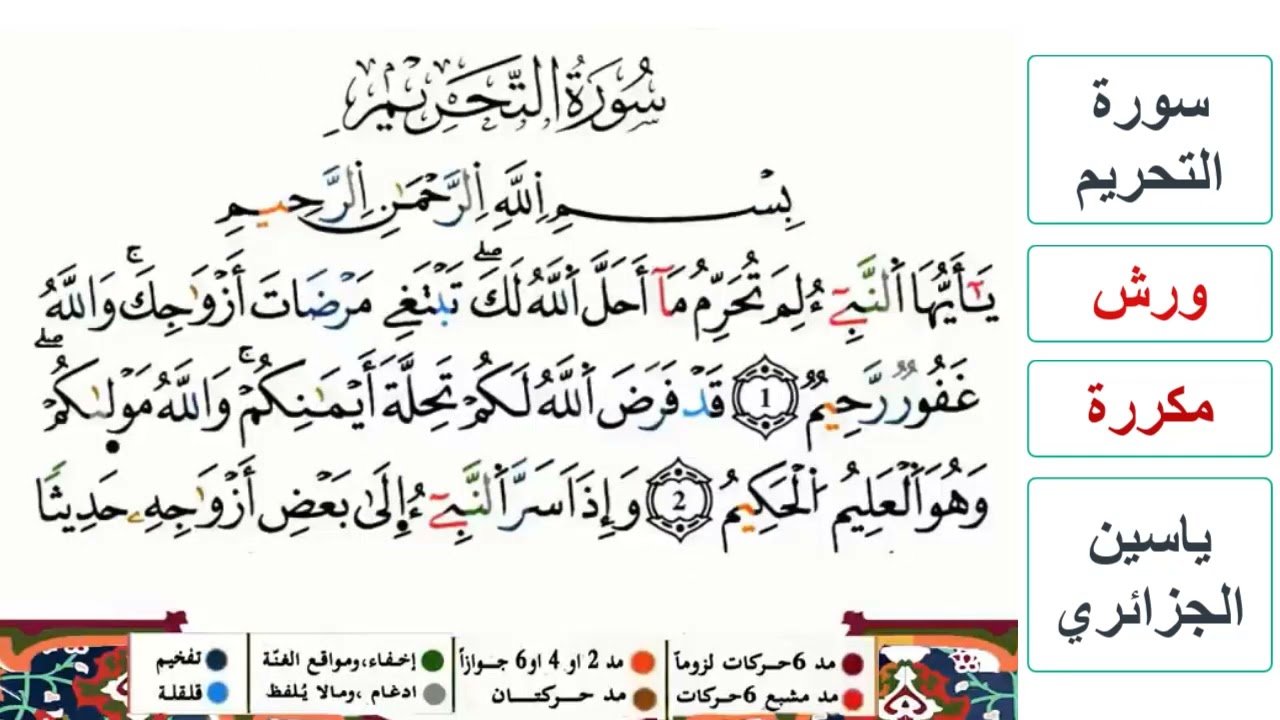 سُورَةُ التَّحْرِيمِ
بِسْمِ اِ۬للَّهِ اِ۬لرَّحْمَٰنِ اِ۬لرَّحِيمِ
يَٰٓأَيُّهَا اَ۬لنَّبِےٓءُ لِمَ تُحَرِّمُ مَآ أَحَلَّ اَ۬للَّهُ لَكَۖ تَبْتَغِے مَرْضَاتَ أَزْوَٰجِكَۚ وَاللَّهُ
غَفُورٞ رَّحِيمٞ 1 قَدْ فَرَضَ اَ۬للَّهُ لَكُمْ تَحِلَّةَ أَيْمَٰنِكُمْۚ وَاللَّهُ مَوْل۪ىٰكُمْۖ
وَهُوَ اَ۬لْعَلِيمُ اُ۬لْحَكِيمُ 2 وَإِذَ اَسَرَّ اَ۬لنَّبِےٓءُ إِلَىٰ بَعْضِ أَزْوَٰجِهِۦ حَدِيثٗا
مد 6 حركات لزوماً
مد 2 او 4 او 6 جوازاً
إخفاء، ومواقع الغنّة
تفخيم
مد مشبع 6 حركات
مد حركتان
ادغام، ومالا يُلفظ
قلقلة
سورة
التحريم
ورش
مكررة
ياسين
الجزائري